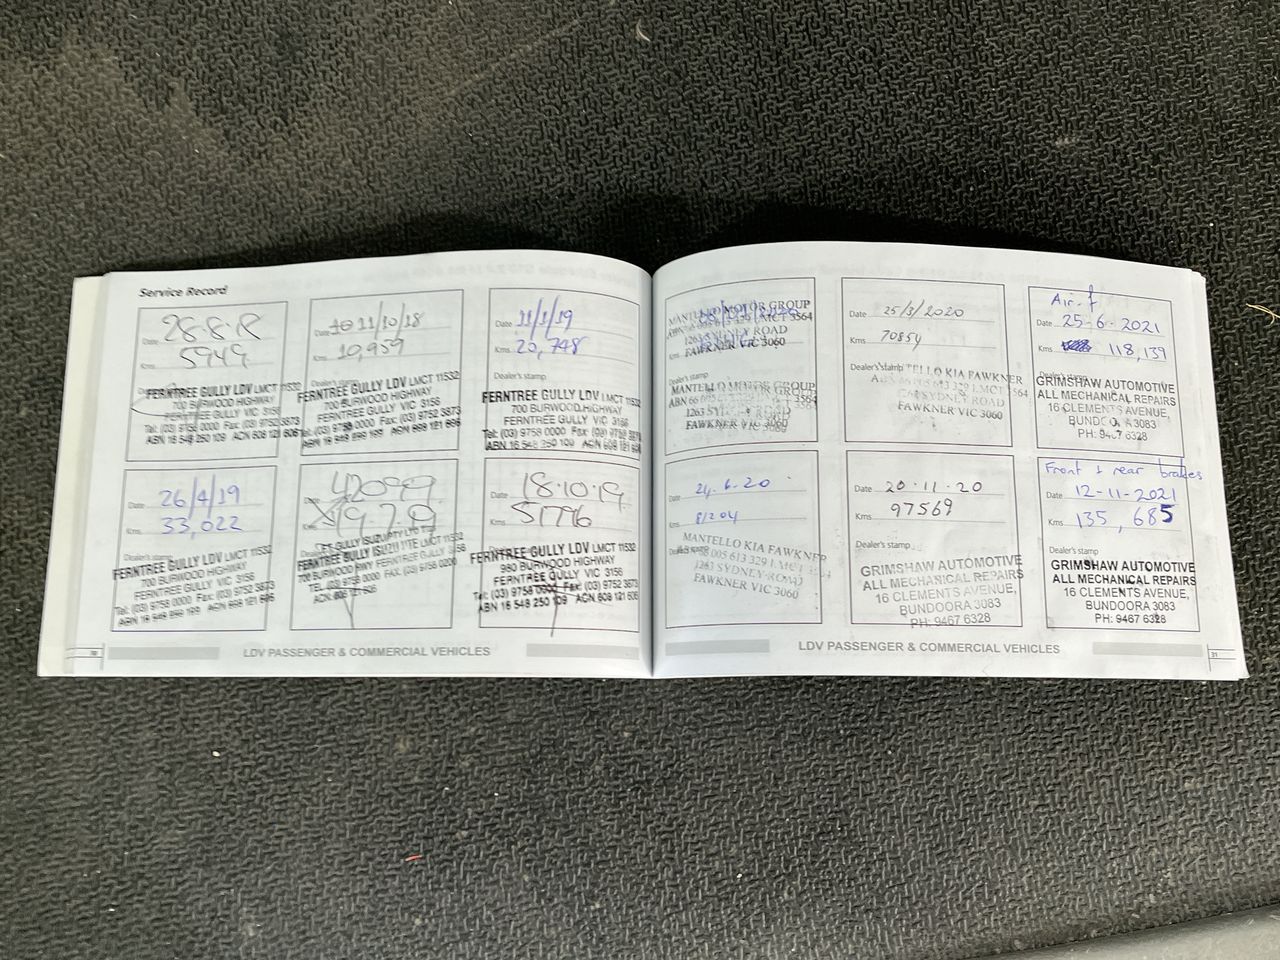 Service Record
28.8.18
Date
5949
Kms
FERNTREE GULLY LDV LMCT 11532
700 BURWOOD HIGHWAY
FERNTREE GULLY VIC 3156
Tel: (03) 9758 0000 Fax: (03) 9752 3873
ABN 16 548 250 109 ACN 608 121 606
Date 11/10/18
Kms 10,959
Dealer's stamp
FERNTREE GULLY LDV LMCT 11532
700 BURWOOD HIGHWAY
FERNTREE GULLY VIC 3156
Tel: (03) 9758 0000 Fax: (03) 9752 3873
Date 11/1/19
Kms 20,748
Dealer's stamp
FERNTREE GULLY LDV LMCT 11532
700 BURWOOD HIGHWAY
FERNTREE GULLY VIC 3156
Tel: (03) 9758 0000 Fax: (03) 9752 3873
ABN 16 548 250 109 ACN 608 121 606
Date 26/4/19
Kms 33,022
Dealer's stamp
FERNTREE GULLY LDV LMCT 11532
700 BURWOOD HIGHWAY
FERNTREE GULLY VIC 3156
Tel: (03) 9758 0000 Fax: (03) 9752 3873
42099
Date
19.7.19
Date 18.10.19
Kms 51776
FERNTREE GULLY LDV LMCT 11532
980 BURWOOD HIGHWAY
FERNTREE GULLY VIC 3156
Tel: (03) 9758 0000 Fax: (03) 9752 3873
ABN 16 548 250 109 ACN 608 121 606
LDV PASSENGER & COMMERCIAL VEHICLES
MANTELLO MOTOR GROUP
1263 SYDNEY ROAD
FAWKNER VIC 3060
Kms
Dealer's stamp
MANTELLO MOTOR GROUP
1263 SYDNEY ROAD
FAWKNER VIC 3060
Date 25/3/2020
Kms 70854
Dealer's stamp
MANTELLO KIA FAWKNER
1263 SYDNEY ROAD
FAWKNER VIC 3060
Air.f
Date 25-6-2021
Kms 118,139
GRIMSHAW AUTOMOTIVE
ALL MECHANICAL REPAIRS
16 CLEMENTS AVENUE,
BUNDOORA 3083
PH: 9467 6328
Date 24.6.20
Kms 81204
MANTELLO KIA FAWKNER
1263 SYDNEY ROAD
FAWKNER VIC 3060
Date 20.11.20
Kms 97569
Dealer's stamp
GRIMSHAW AUTOMOTIVE
ALL MECHANICAL REPAIRS
16 CLEMENTS AVENUE,
BUNDOORA 3083
PH: 9467 6328
Front & rear brakes
Date 12-11-2021
Kms 135,685
Dealer's stamp
GRIMSHAW AUTOMOTIVE
ALL MECHANICAL REPAIRS
16 CLEMENTS AVENUE,
BUNDOORA 3083
PH: 9467 6328
LDV PASSENGER & COMMERCIAL VEHICLES
31